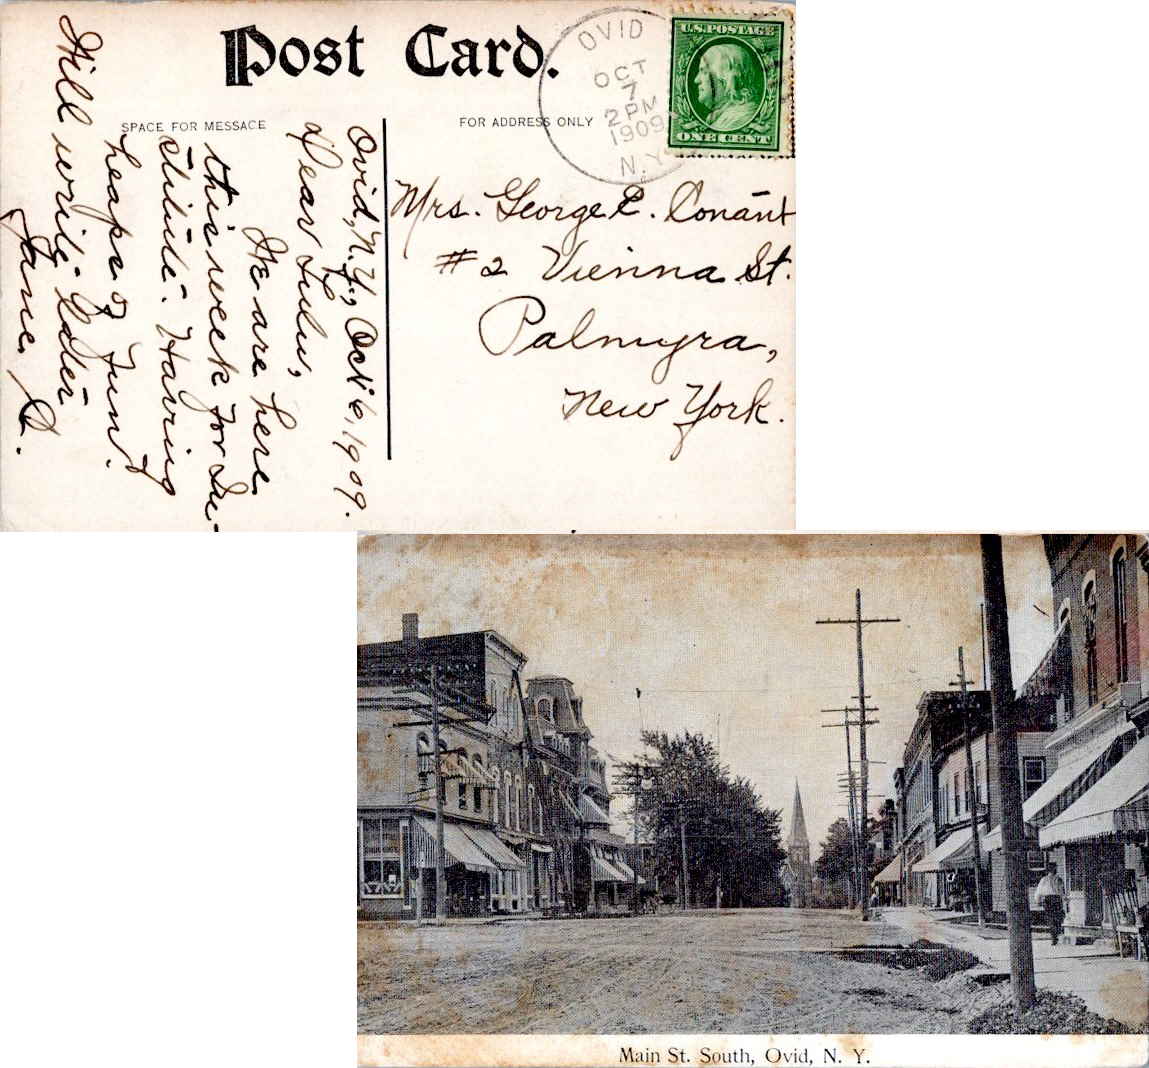 Post Card.
SPACE FOR MESSAGE
FOR ADDRESS ONLY
OVID
OCT
7
2 PM
1909
N.Y.
U.S. POSTAGE
ONE CENT
Mrs. George E. Conant
#2 Vienna St.
Palmyra,
New York.
Ovid, N.Y., Oct 6, 1909.
Dear Lulu,
We are here
this week for In-
stitute. Having
heaps of fun.
Will write later
Jane D.
Main St. South, Ovid, N. Y.